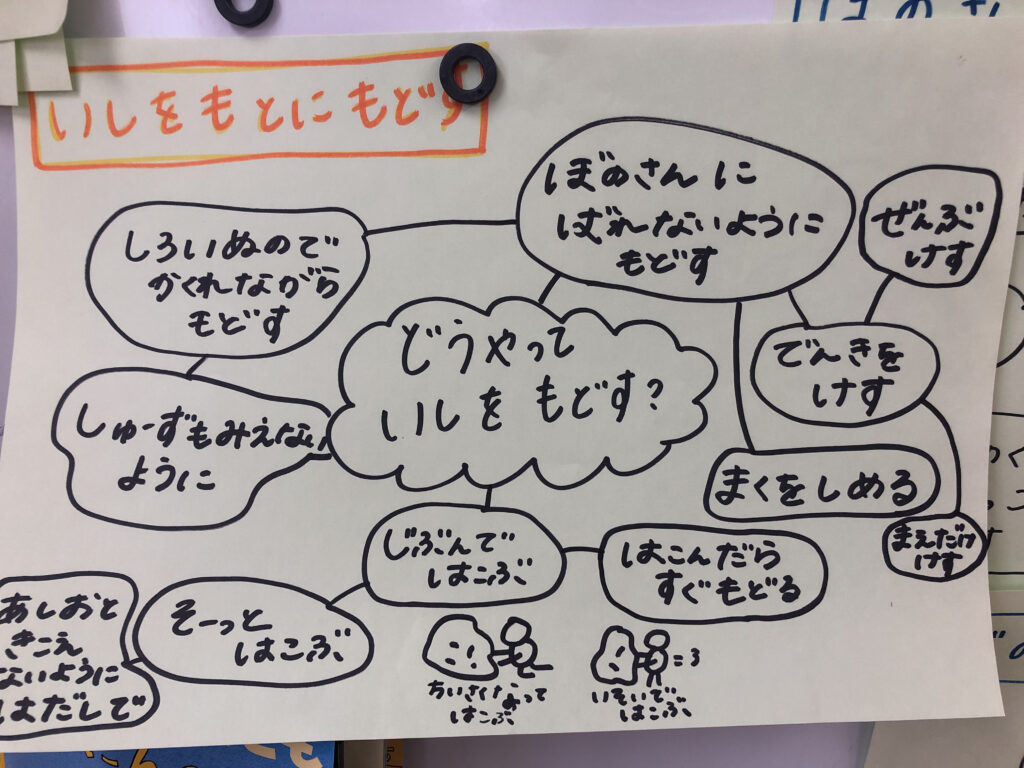 いしをもとにもどす
ぼのさんに
ばれないように
もどす
ぜんぶ
けす
しろいぬので
かくれながら
もどす
どうやって
いしをもどす?
でんきを
けす
しゅーずもみえない
ように
まくをしめる
まえだけ
けす
じぶんで
はこぶ
はこんだら
すぐもどる
そーっと
はこぶ
あしおと
きこえ
ないように
はだしで
ちいさくなって
はこぶ
いそいで
はこぶ